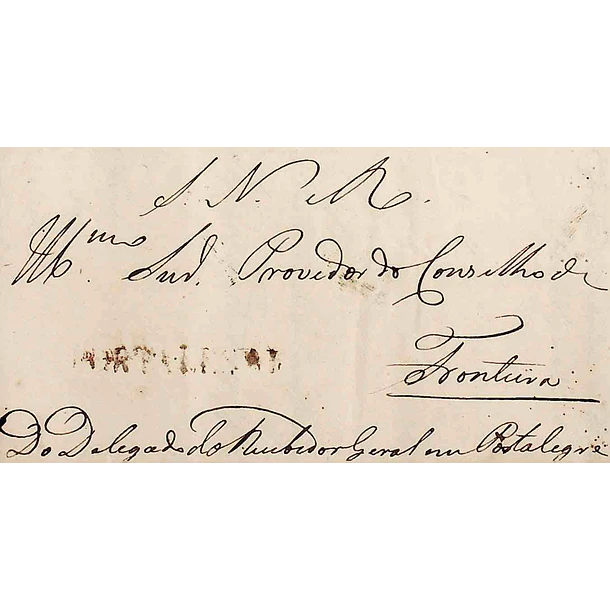 S. N. R.
Illmo. Snr. Provedor do Conselho de
Fronteira
Do Delegado do Recebedor Geral em Portalegre